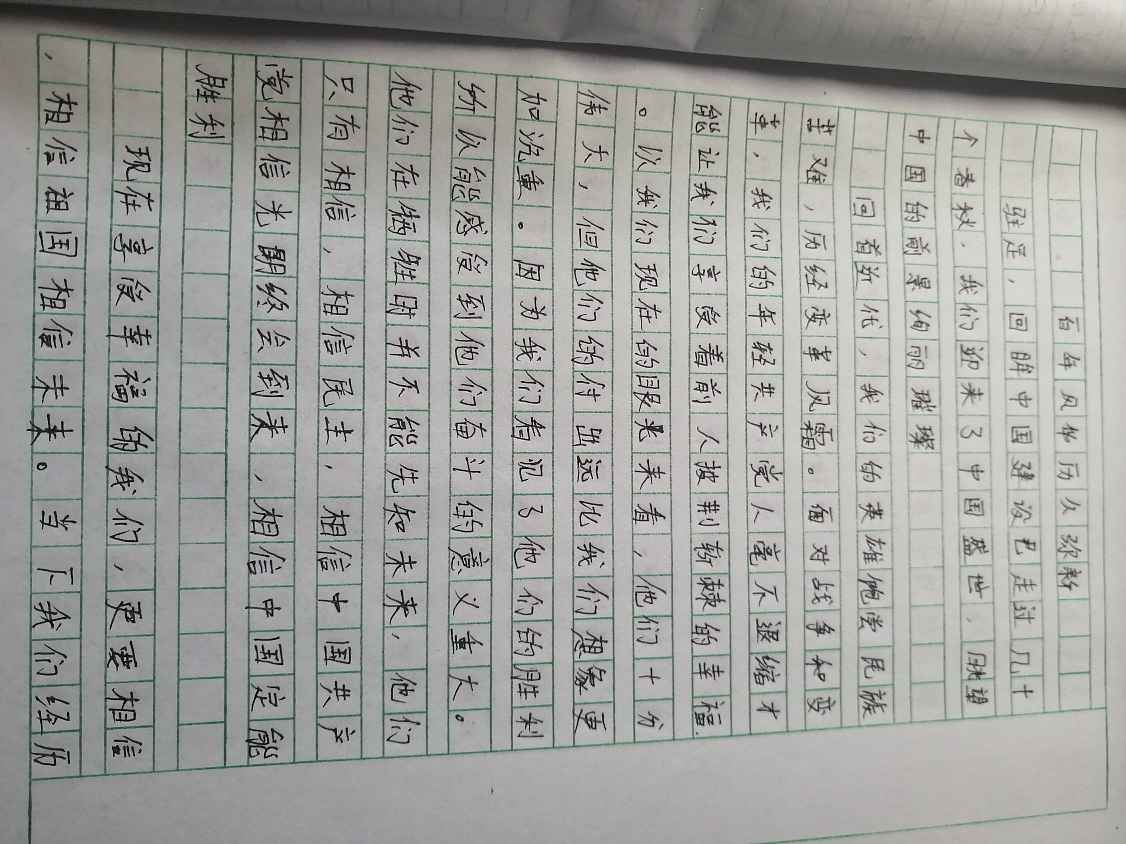 百年风华历久弥新
驻足，回眸中国建设已走过几十
个春秋，我们迎来了中国盛世，眺望
中国的前景绚丽璀璨
回首近代，我们的英雄饱尝民族
苦难，历经变革风霜。面对战争和变
革，我们的年轻共产党人毫不退缩才
能让我们享受着前人披荆斩棘的幸福
。以我们现在的眼光来看，他们十分
伟大，但他们的付出远比我们想象更
加沉重。因为我们看见了他们的胜利
所以能感受到他们奋斗的意义重大。
他们在牺牲时并不能先知未来，他们
只有相信，相信民主，相信中国共产
党相信光明终会到来，相信中国定能
胜利
现在享受幸福的我们，更要相信
，相信祖国相信未来。当下我们经历